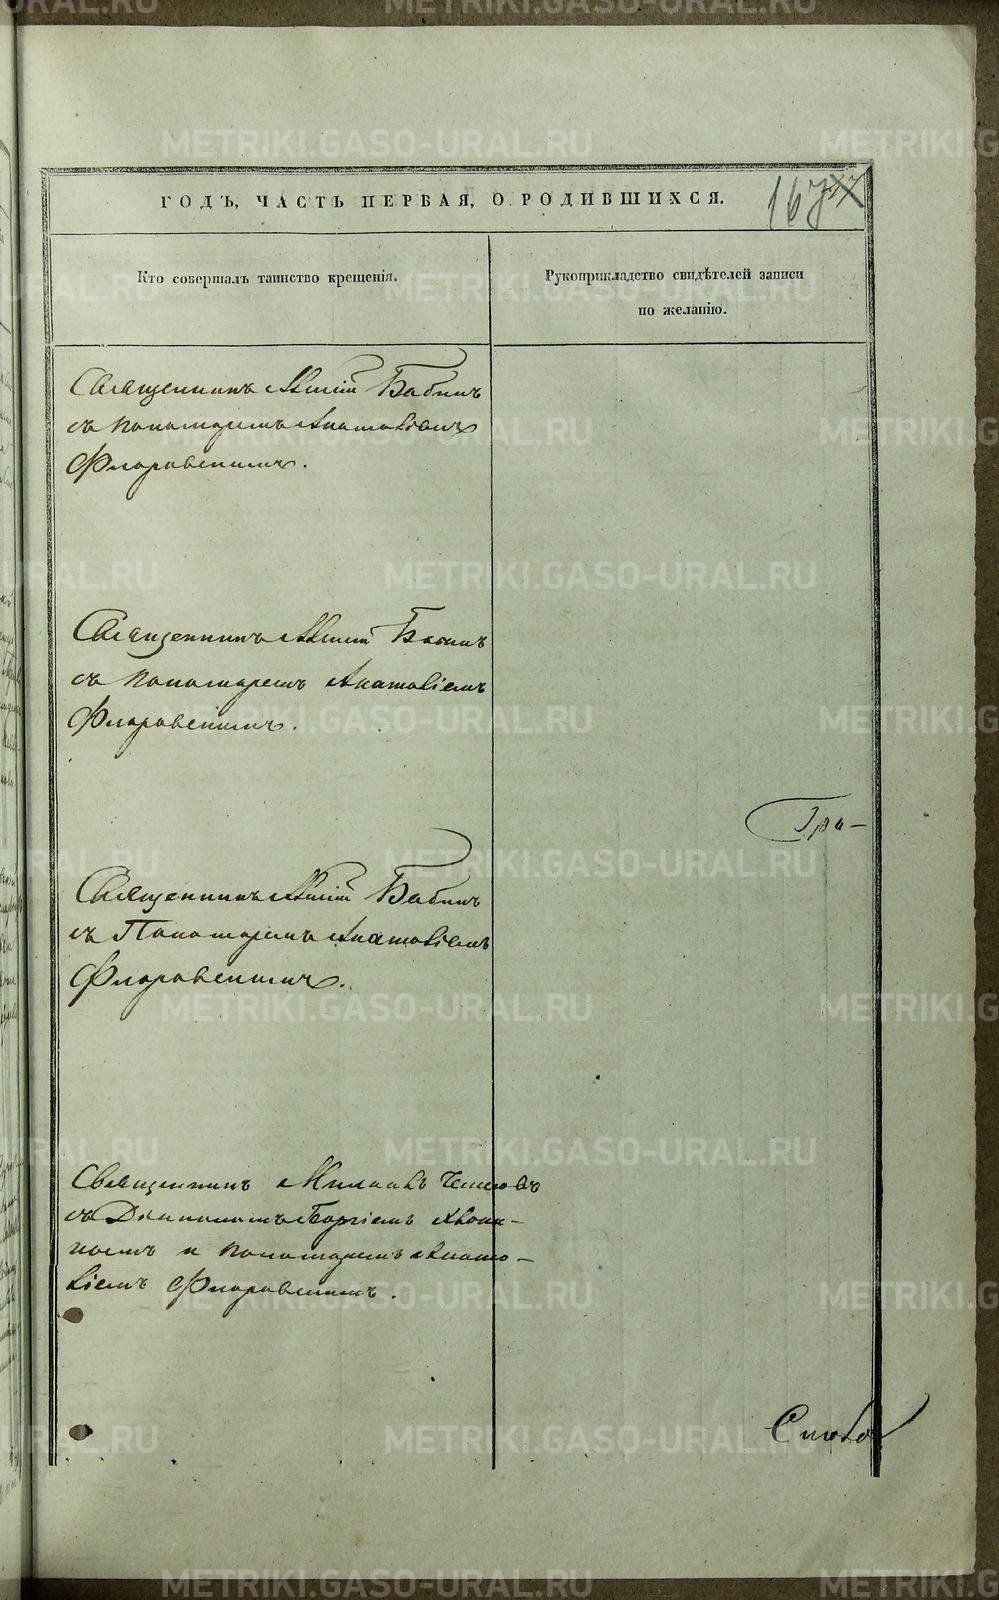 ГОДЪ, ЧАСТЬ ПЕРВАЯ, О РОДИВШИХСЯ.
167
Кто совершалъ таинство крещенія.
Рукоприкладство свидѣтелей записи
по желанію.
Священникъ Бабинъ
съ пономаремъ Анатоліемъ
Флоровскимъ.
Священникъ Бабинъ
съ пономаремъ Анатоліемъ
Флоровскимъ.
Гри-
Священникъ Бабинъ
съ Пономаремъ Анатоліемъ
Флоровскимъ.
Священникъ
съ Діакономъ Георгіемъ
и пономаремъ Анато-
ліемъ Флоровскимъ.
METRIKI.GASO-URAL.RU